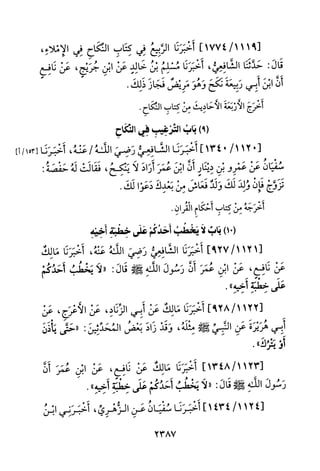 [١٧٧٤/١١١٩] أَخْبَرَنَا الرَّبِيعُ فِي كِتَابِ النِّكَاحِ فِي الإِمْلاءِ،
قَالَ: حَدَّثَنَا الشَّافِعِيُّ، أَخْبَرَنَا مُسْلِمُ بْنُ خَالِدٍ عَنْ ابْنِ جُرَيْجٍ، عَنْ نَافِعٍ
أَنَّ ابْنَ أَبِي رَبِيعَةَ نَكَحَ وَهُوَ مَرِيضٌ فَجَازَ ذَلِكَ.
أَخْرَجَ الأَرْبَعَةَ الأَحَادِيثَ مِنْ كِتَابِ النِّكَاحِ.
(٩) بَابُ التَّرْغِيبِ فِي النِّكَاحِ
[١٣٤٠/١١٢٠] أَخْبَرَنَا الشَّافِعِيُّ رَضِيَ اللَّهُ عَنْهُ، أَخْبَرَنَا [١٥٣/أ]
سُفْيَانُ عَنْ عَمْرِو بْنِ دِينَارٍ أَنَّ ابْنَ عُمَرَ أَرَادَ لَا يَنْكِحُ، فَقَالَتْ لَهُ حَفْصَةُ:
تَزَوَّجْ فَإِنْ وُلِدَ لَكَ وَلَدٌ فَعَاشَ مِنْ بَعْدِكَ دَعَوْا لَكَ.
أَخْرَجَهُ مِنْ كِتَابِ أَحْكَامِ الْقُرْآنِ.
(١٠) بَابُ لَا يَخْطُبُ أَحَدُكُمْ عَلَى خِطْبَةِ أَخِيهِ
[٩٢٧/١١٢١] أَخْبَرَنَا الشَّافِعِيُّ رَضِيَ اللَّهُ عَنْهُ، أَخْبَرَنَا مَالِكٌ
عَنْ نَافِعٍ، عَنْ ابْنِ عُمَرَ أَنَّ رَسُولَ اللَّهِ ﷺ قَالَ: «لَا يَخْطُبُ أَحَدُكُمْ
عَلَى خِطْبَةِ أَخِيهِ».
[٩٢٨/١١٢٢] أَخْبَرَنَا مَالِكٌ عَنْ أَبِي الزِّنَادِ، عَنْ الأَعْرَجِ، عَنْ
أَبِي هُرَيْرَةَ عَنِ النَّبِيِّ ﷺ مِثْلَهُ، وَقَدْ زَادَ بَعْضُ الْمُحَدِّثِينَ: «حَتَّى يَأْذَنَ
أَوْ يَتْرُكَ».
[١٣٤٨/١١٢٣] أَخْبَرَنَا مَالِكٌ عَنْ نَافِعٍ، عَنْ ابْنِ عُمَرَ أَنَّ
رَسُولَ اللَّهِ ﷺ قَالَ: «لَا يَخْطُبُ أَحَدُكُمْ عَلَى خِطْبَةِ أَخِيهِ».
[١٤٣٤/١١٢٤] أَخْبَرَنَا سُفْيَانُ عَنِ الزُّهْرِيِّ، أَخْبَرَنِي ابْنُ
٢٣٨٧